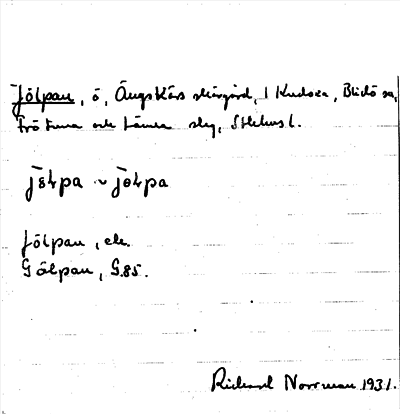 Jölpan, ö, Ängskärs skärgård, 1 Kudoxa, Blidö sn,
Frötuna och Länna skg, Sthlms l.
jölpa ~ jölpa
Jölpan, ek.
Gölpan, G.85.
Rickard Norrman 1931.